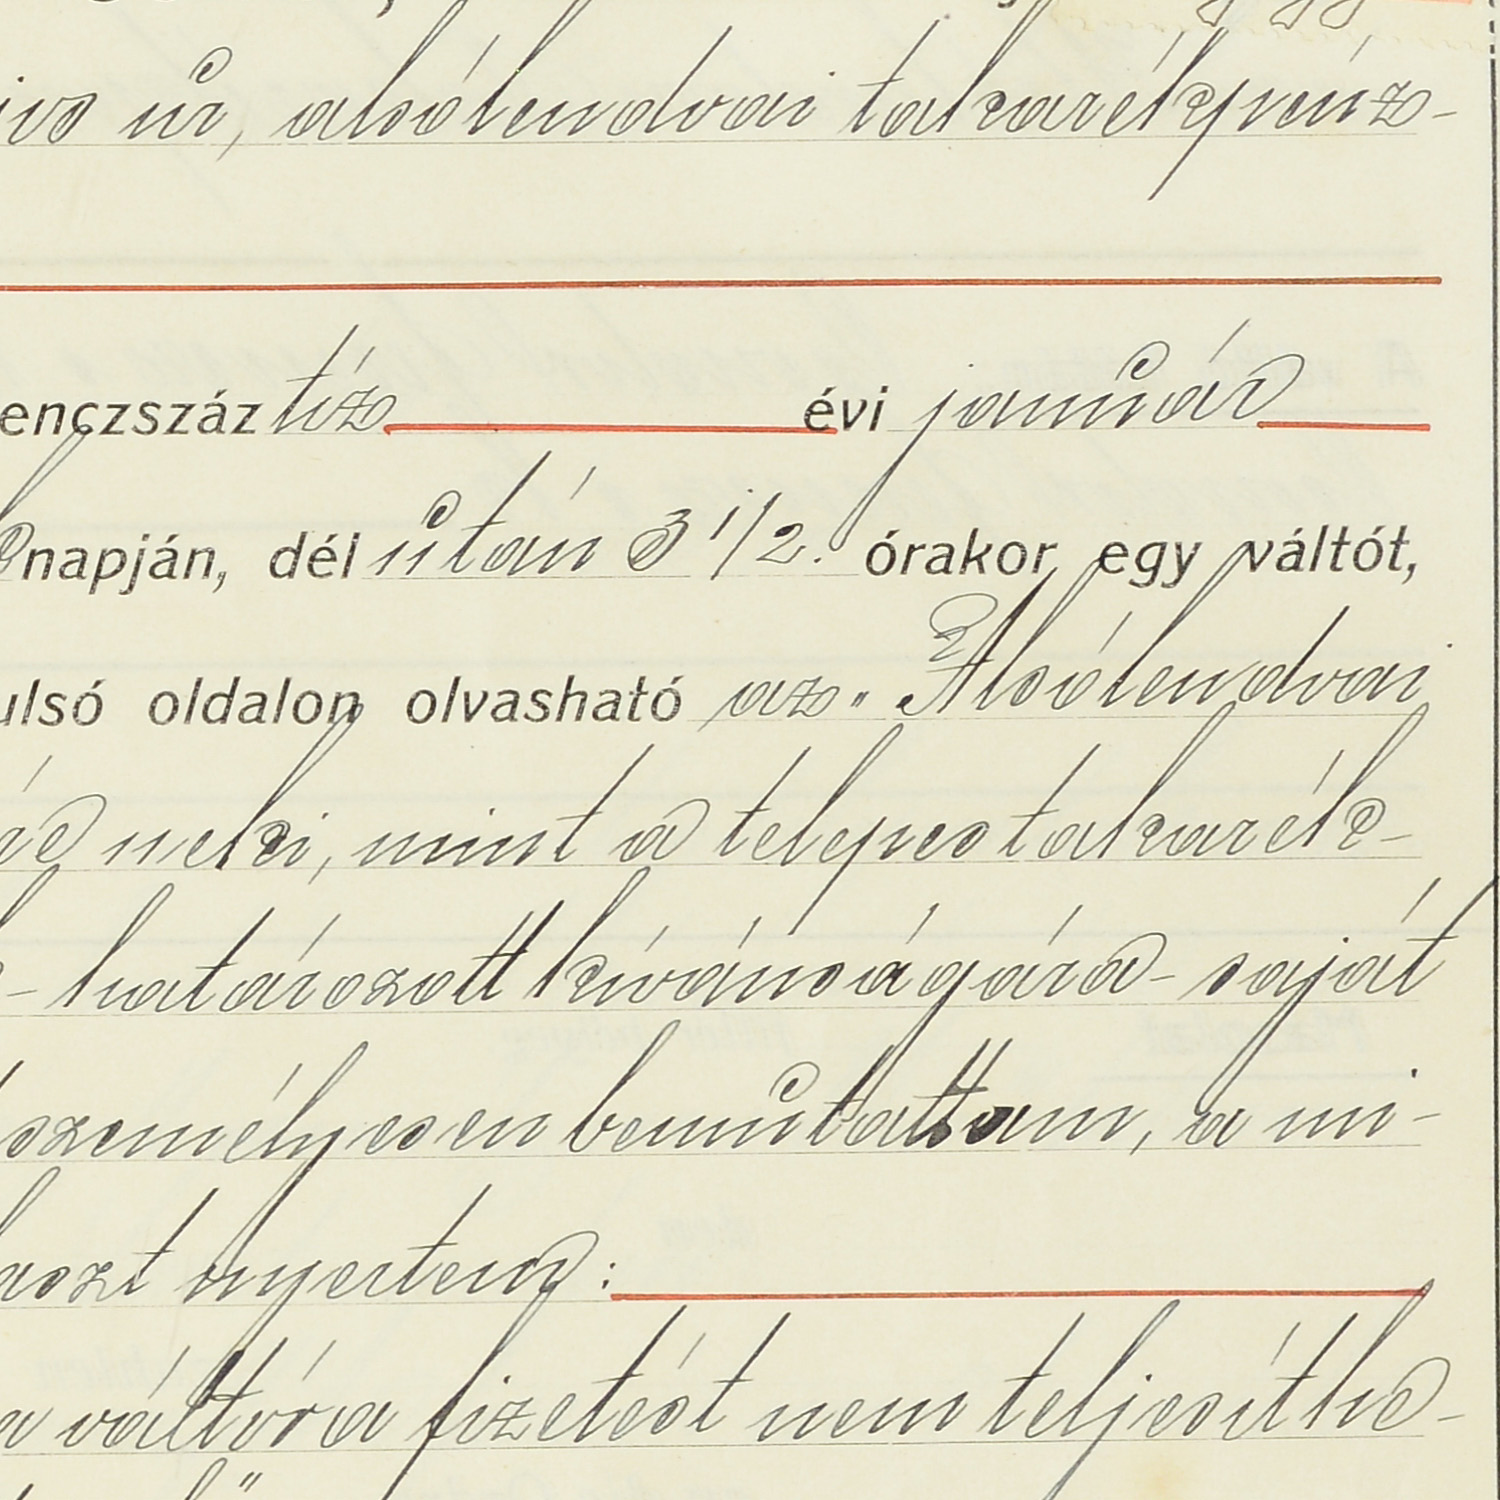 úr, alsólendvai takarékpénz-
enczszáz tíz évi január
napján, dél után 3 1/2. órakor egy váltót,
ulsó oldalon olvasható az „Alsólendvai
neki, mint a telepes takarék-
- határozott kívánságára - saját
személyesen bemutattam, a mi-
laszt nyertem:
a váltóra fizetést nem teljesíthe-